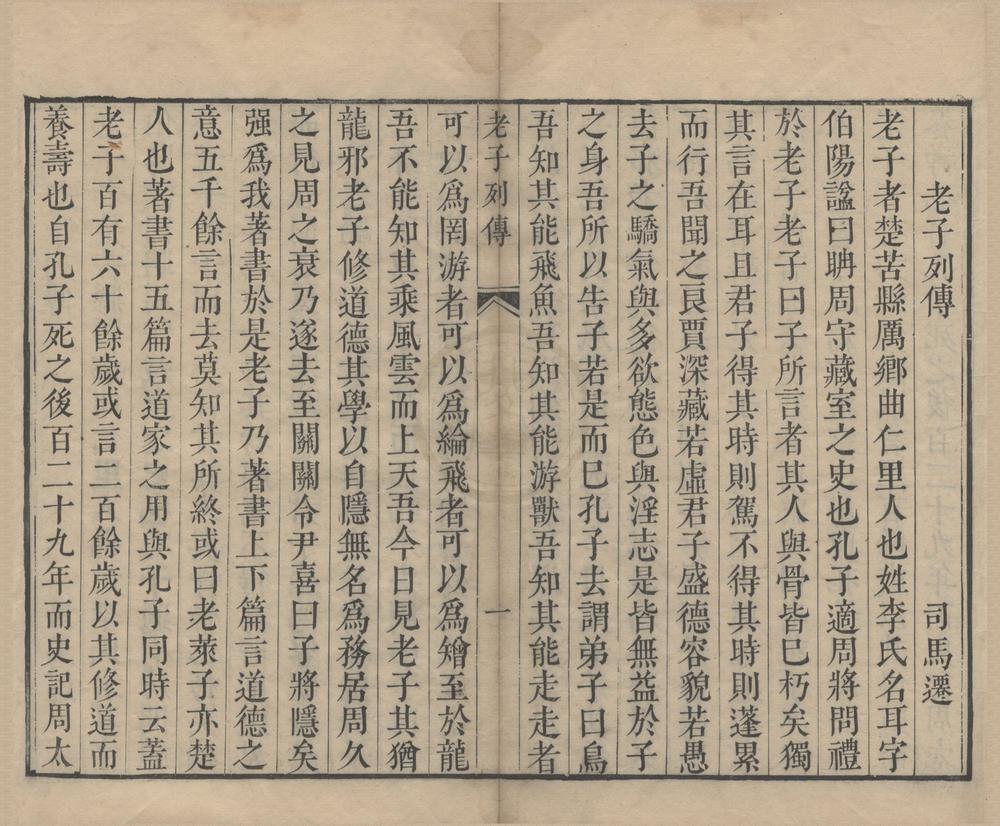 老子列傳 司馬遷
老子者楚苦縣厲鄉曲仁里人也姓李氏名耳字
伯陽諡曰聃周守藏室之史也孔子適周將問禮
於老子老子曰子所言者其人與骨皆已朽矣獨
其言在耳且君子得其時則駕不得其時則蓬累
而行吾聞之良賈深藏若虛君子盛德容貌若愚
去子之驕氣與多欲態色與淫志是皆無益於子
之身吾所以告子若是而已孔子去謂弟子曰鳥
吾知其能飛魚吾知其能游獸吾知其能走走者
老子列傳 一
可以爲罔游者可以爲綸飛者可以爲矰至於龍
吾不能知其乘風雲而上天吾今日見老子其猶
龍邪老子修道德其學以自隱無名爲務居周久
之見周之衰乃遂去至關關令尹喜曰子將隱矣
强爲我著書於是老子乃著書上下篇言道德之
意五千餘言而去莫知其所終或曰老萊子亦楚
人也著書十五篇言道家之用與孔子同時云蓋
老子百有六十餘歲或言二百餘歲以其修道而
養壽也自孔子死之後百二十九年而史記周太